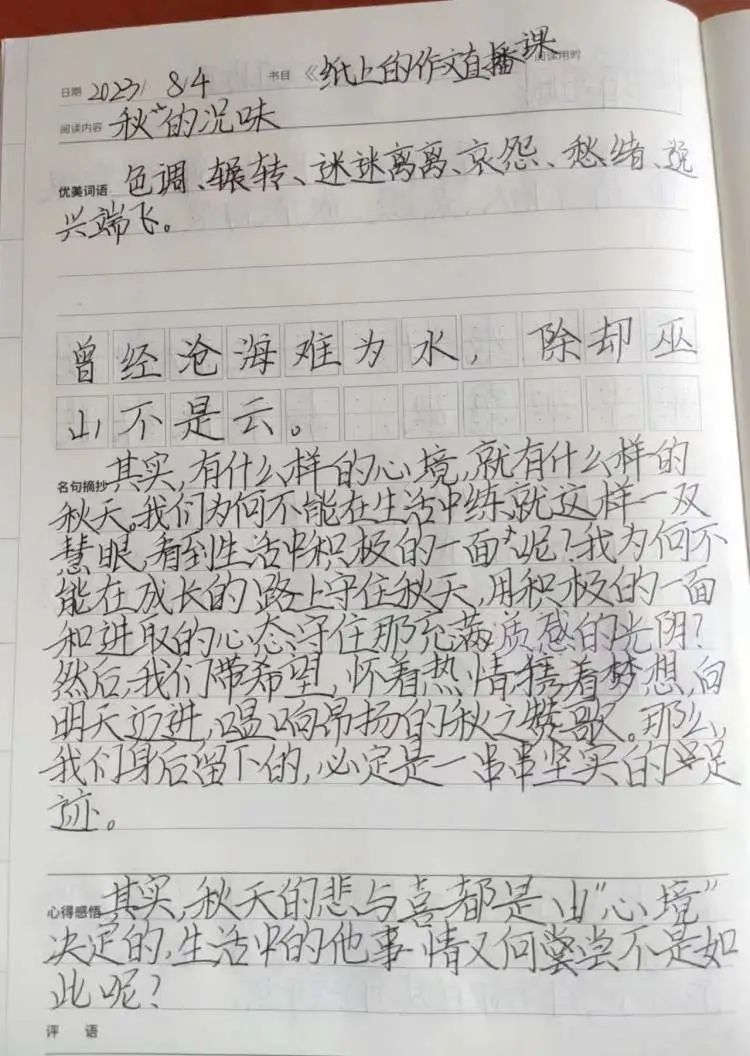 日期 2023/ 8/4 书目 《纸上的作文直播课 阅读用时
阅读内容 秋"的况味
优美词语 色调、辗转、迷迷离离、哀怨、愁绪、逸
兴端飞。
曾经沧海难为水,除却巫
山不是云。
其实,有什么样的心境,就有什么样的
名句摘抄
秋天。我们为何不能在生活中练就这样一双
慧眼,看到生活中积极的一面"呢?我为何不
能在成长的路上守住秋天,用积极的一面
和进取的心态守住那充满质感的光阴?
然后,我们带希望,怀着热情,携着梦想,向
明天迈进,唱响昂扬的秋之赞歌。那么,
我们身后留下的,必定是一串串坚实的足
迹。
心得感悟 其实,秋天的悲与喜都是由"心境"
决定的,生活中的他事情又何尝不是如
此呢?
评 语